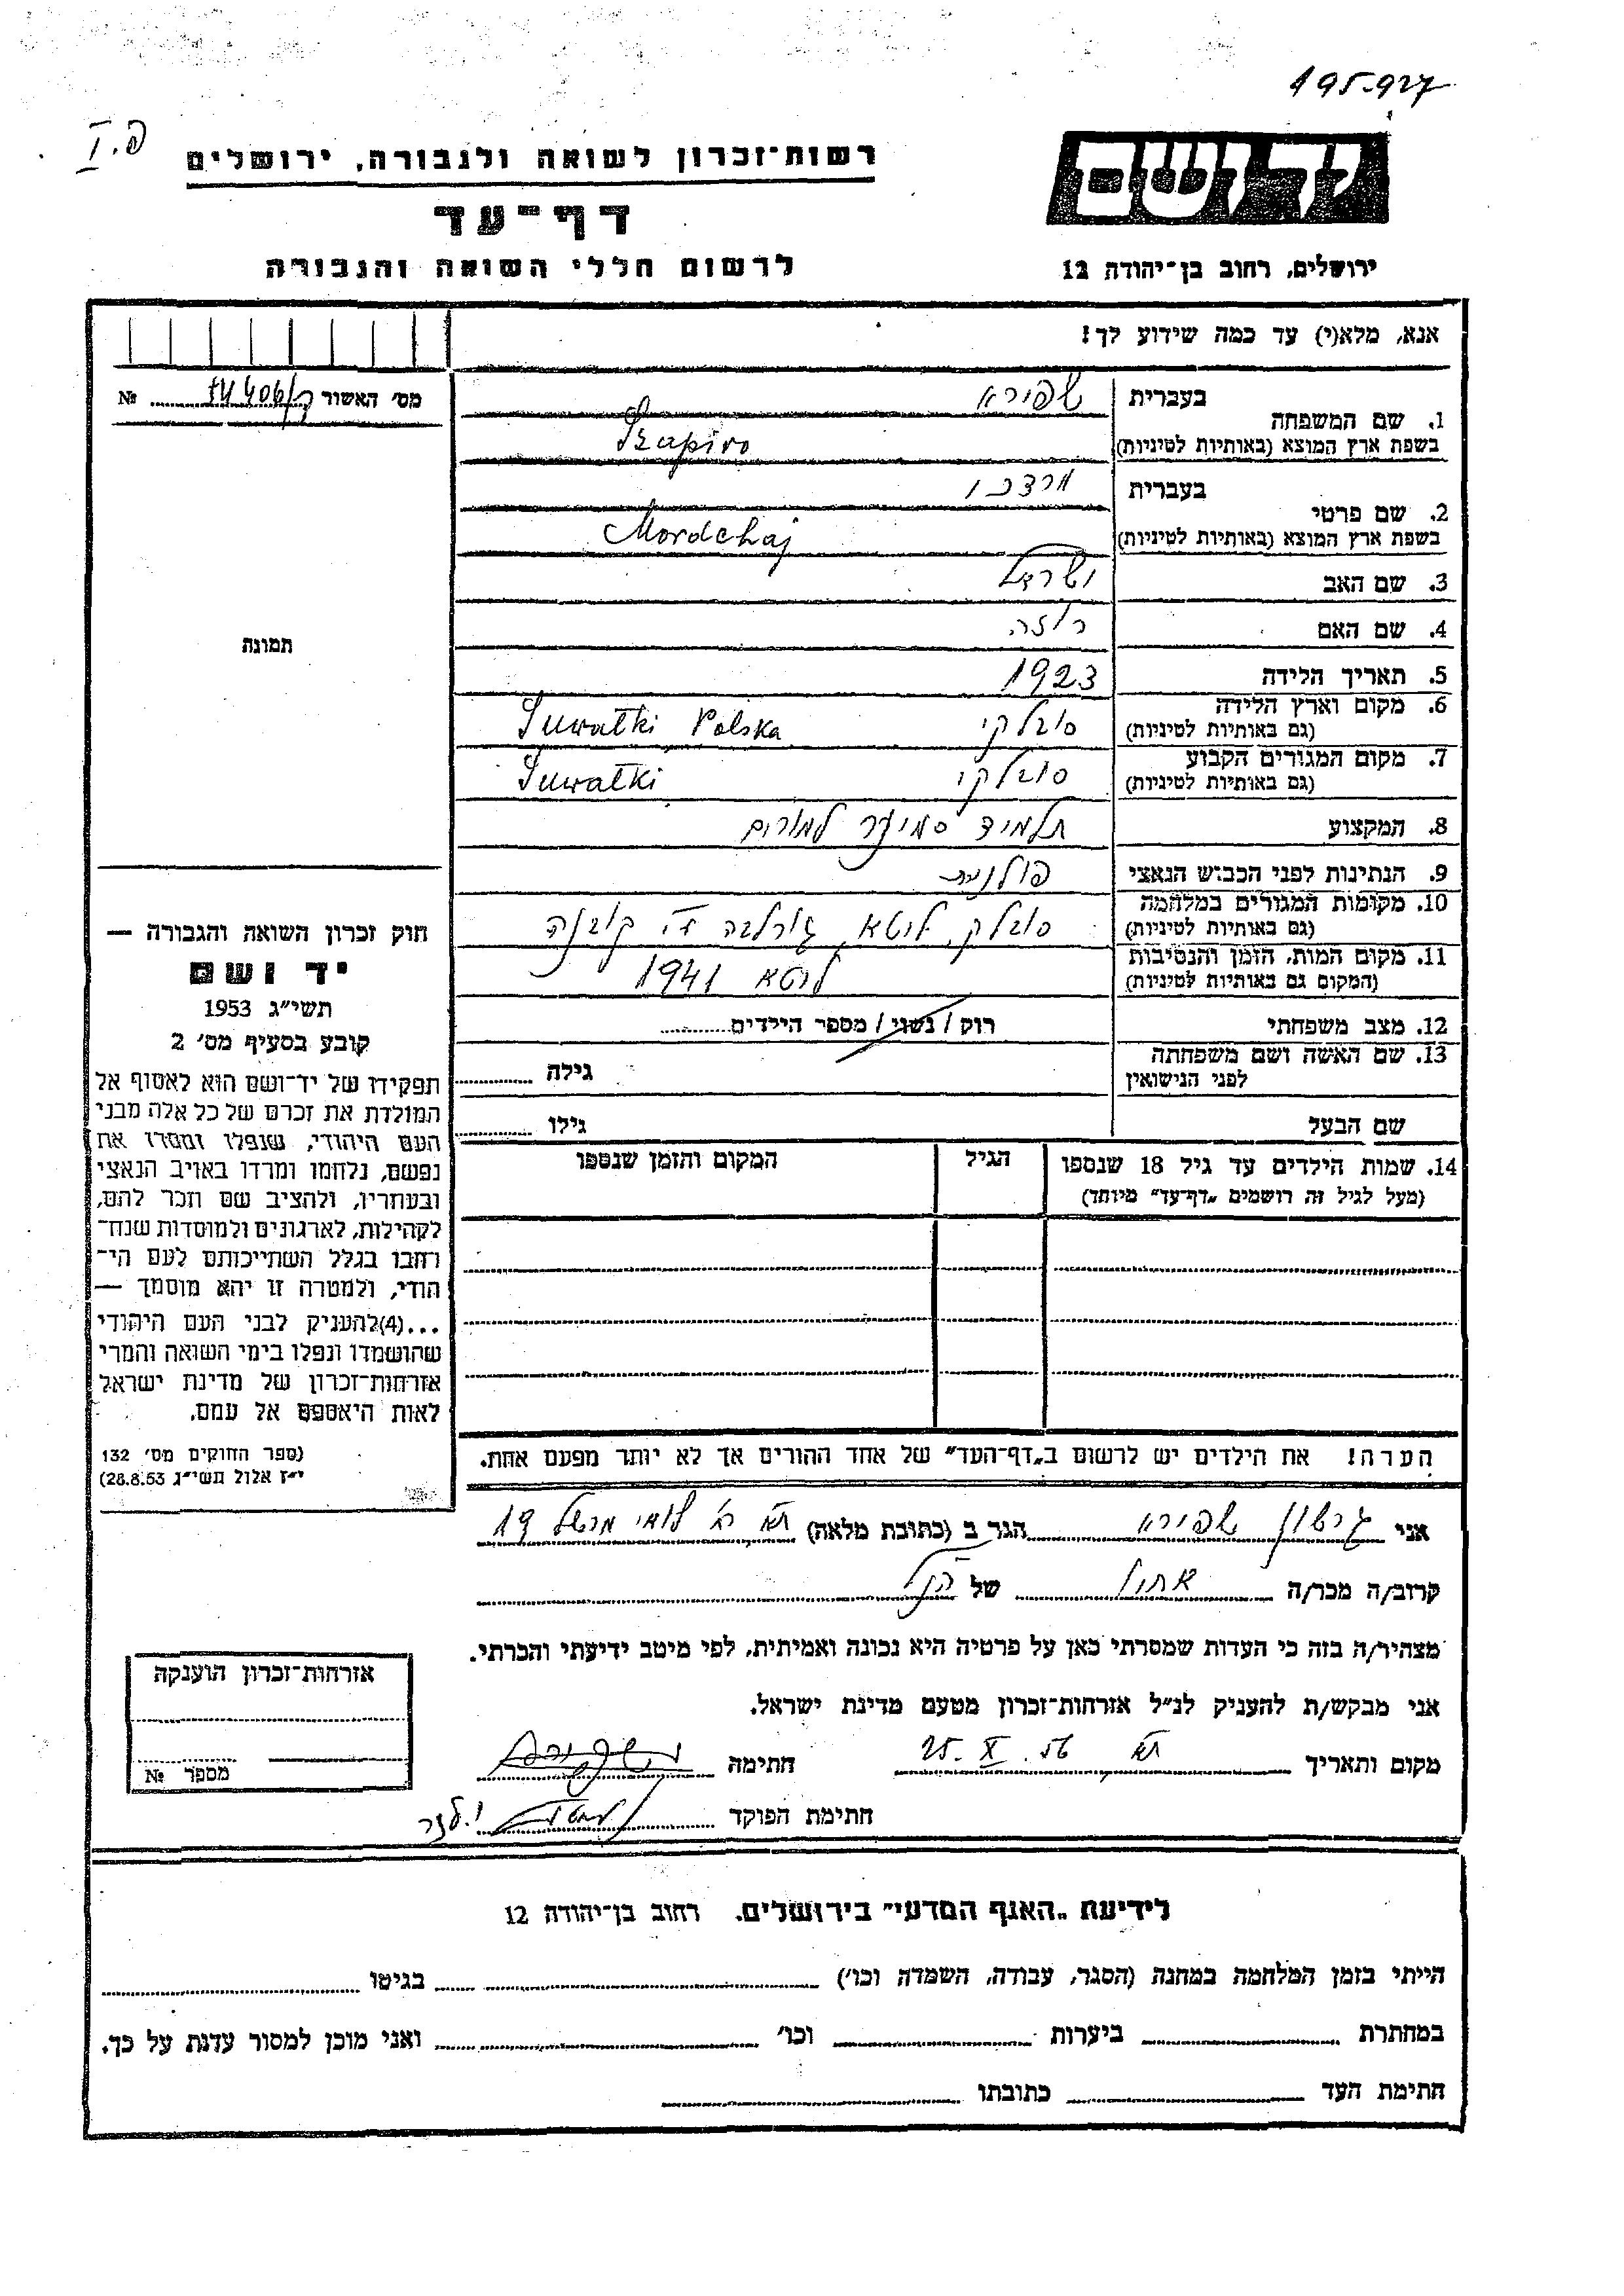 195927
פ. I
ידושם
רשות־זכרון לשואה ולגבורה, ירושלים
דף־עד
לרשום חללי השואה והגבורה
ירושלים, רחוב בן־יהודה 12
אנא, מלא(י) עד כמה שידוע לך!
מס׳ האשור № ........
1. שם המשפחה
בעברית שפירא
בשפת ארץ המוצא (באותיות לטיניות) Szapiro
2. שם פרטי
בעברית מרדכי
בשפת ארץ המוצא (באותיות לטיניות) Mordchaj
3. שם האב ישראל
4. שם האם
5. תאריך הלידה 1923
6. מקום וארץ הלידה סובלקי Suwałki Polska
(גם באותיות לטיניות)
7. מקום המגורים הקבוע סובלקי Suwałki
(גם באותיות לטיניות)
8. המקצוע תלמיד סמינר למורים
9. הנתינות לפני הכבוש הנאצי פולנית
10. מקומות המגורים במלחמה
(גם באותיות לטיניות) סובלק, ליטא, קובנה
11. מקום המות, הזמן והנסיבות
(המקום גם באותיות לטיניות) ליטא 1941
12. מצב משפחתי רוק / נשוי / מספר הילדים........
13. שם האשה ושם משפחתה
לפני הנישואין גילה ........
שם הבעל גילו ........
14. שמות הילדים עד גיל 18 שנספו
(מעל לגיל זה רושמים „דף־עד״ מיוחד)
הגיל
המקום והזמן שנספו
הערה! את הילדים יש לרשום ב„דף־העד״ של אחד ההורים אך לא יותר מפעם אחת.
תמונה
חוק זכרון השואה והגבורה —
יד ושם
תשי״ג 1953
קובע בסעיף מס׳ 2
תפקידו של יד־ושם הוא לאסוף אל
המולדת את זכרם של כל אלה מבני
העם היהודי, שנפלו ומסרו את
נפשם, נלחמו ומרדו באויב הנאצי
ובעוזריו, ולהציב שם וזכר להם,
לקהילות, לארגונים ולמוסדות שנח־
רחבו בגלל השתייכותם לעם הי־
הודי, ולמטרה זו יהא מוסמך —
...(4)להעניק לבני העם היהודי
שהושמדו ונפלו בימי השואה והמרי
אזרחות־זכרון של מדינת ישראל
לאות היאספם אל עמם.
(ספר החוקים מס׳ 132
י״ז אלול תשי״ג 28.8.53)
אני גרשון שפירא הגר ב (כתובת מלאה) ת״א 19
קרוב/ה מכר/ה של הנ״ל
מצהיר/ה בזה כי העדות שמסרתי כאן על פרטיה היא נכונה ואמיתית, לפי מיטב ידיעתי והכרתי.
אני מבקש/ת להעניק לנ״ל אזרחות־זכרון מטעם מדינת ישראל.
מקום ותאריך ת״א 25. X. 56 חתימה
חתימת הפוקד
אזרחות־זכרון הוענקה
מספר №
לידיעת „האגף המדעי״ בירושלים. רחוב בן־יהודה 12
הייתי בזמן המלחמה במחנה (הסגר, עבודה, השמדה וכו׳) ........ בגיטו ........
במחתרת ........ ביערות ........ וכו׳ ........ ואני מוכן למסור עדות על כך.
חתימת העד ........ כתובתו ........